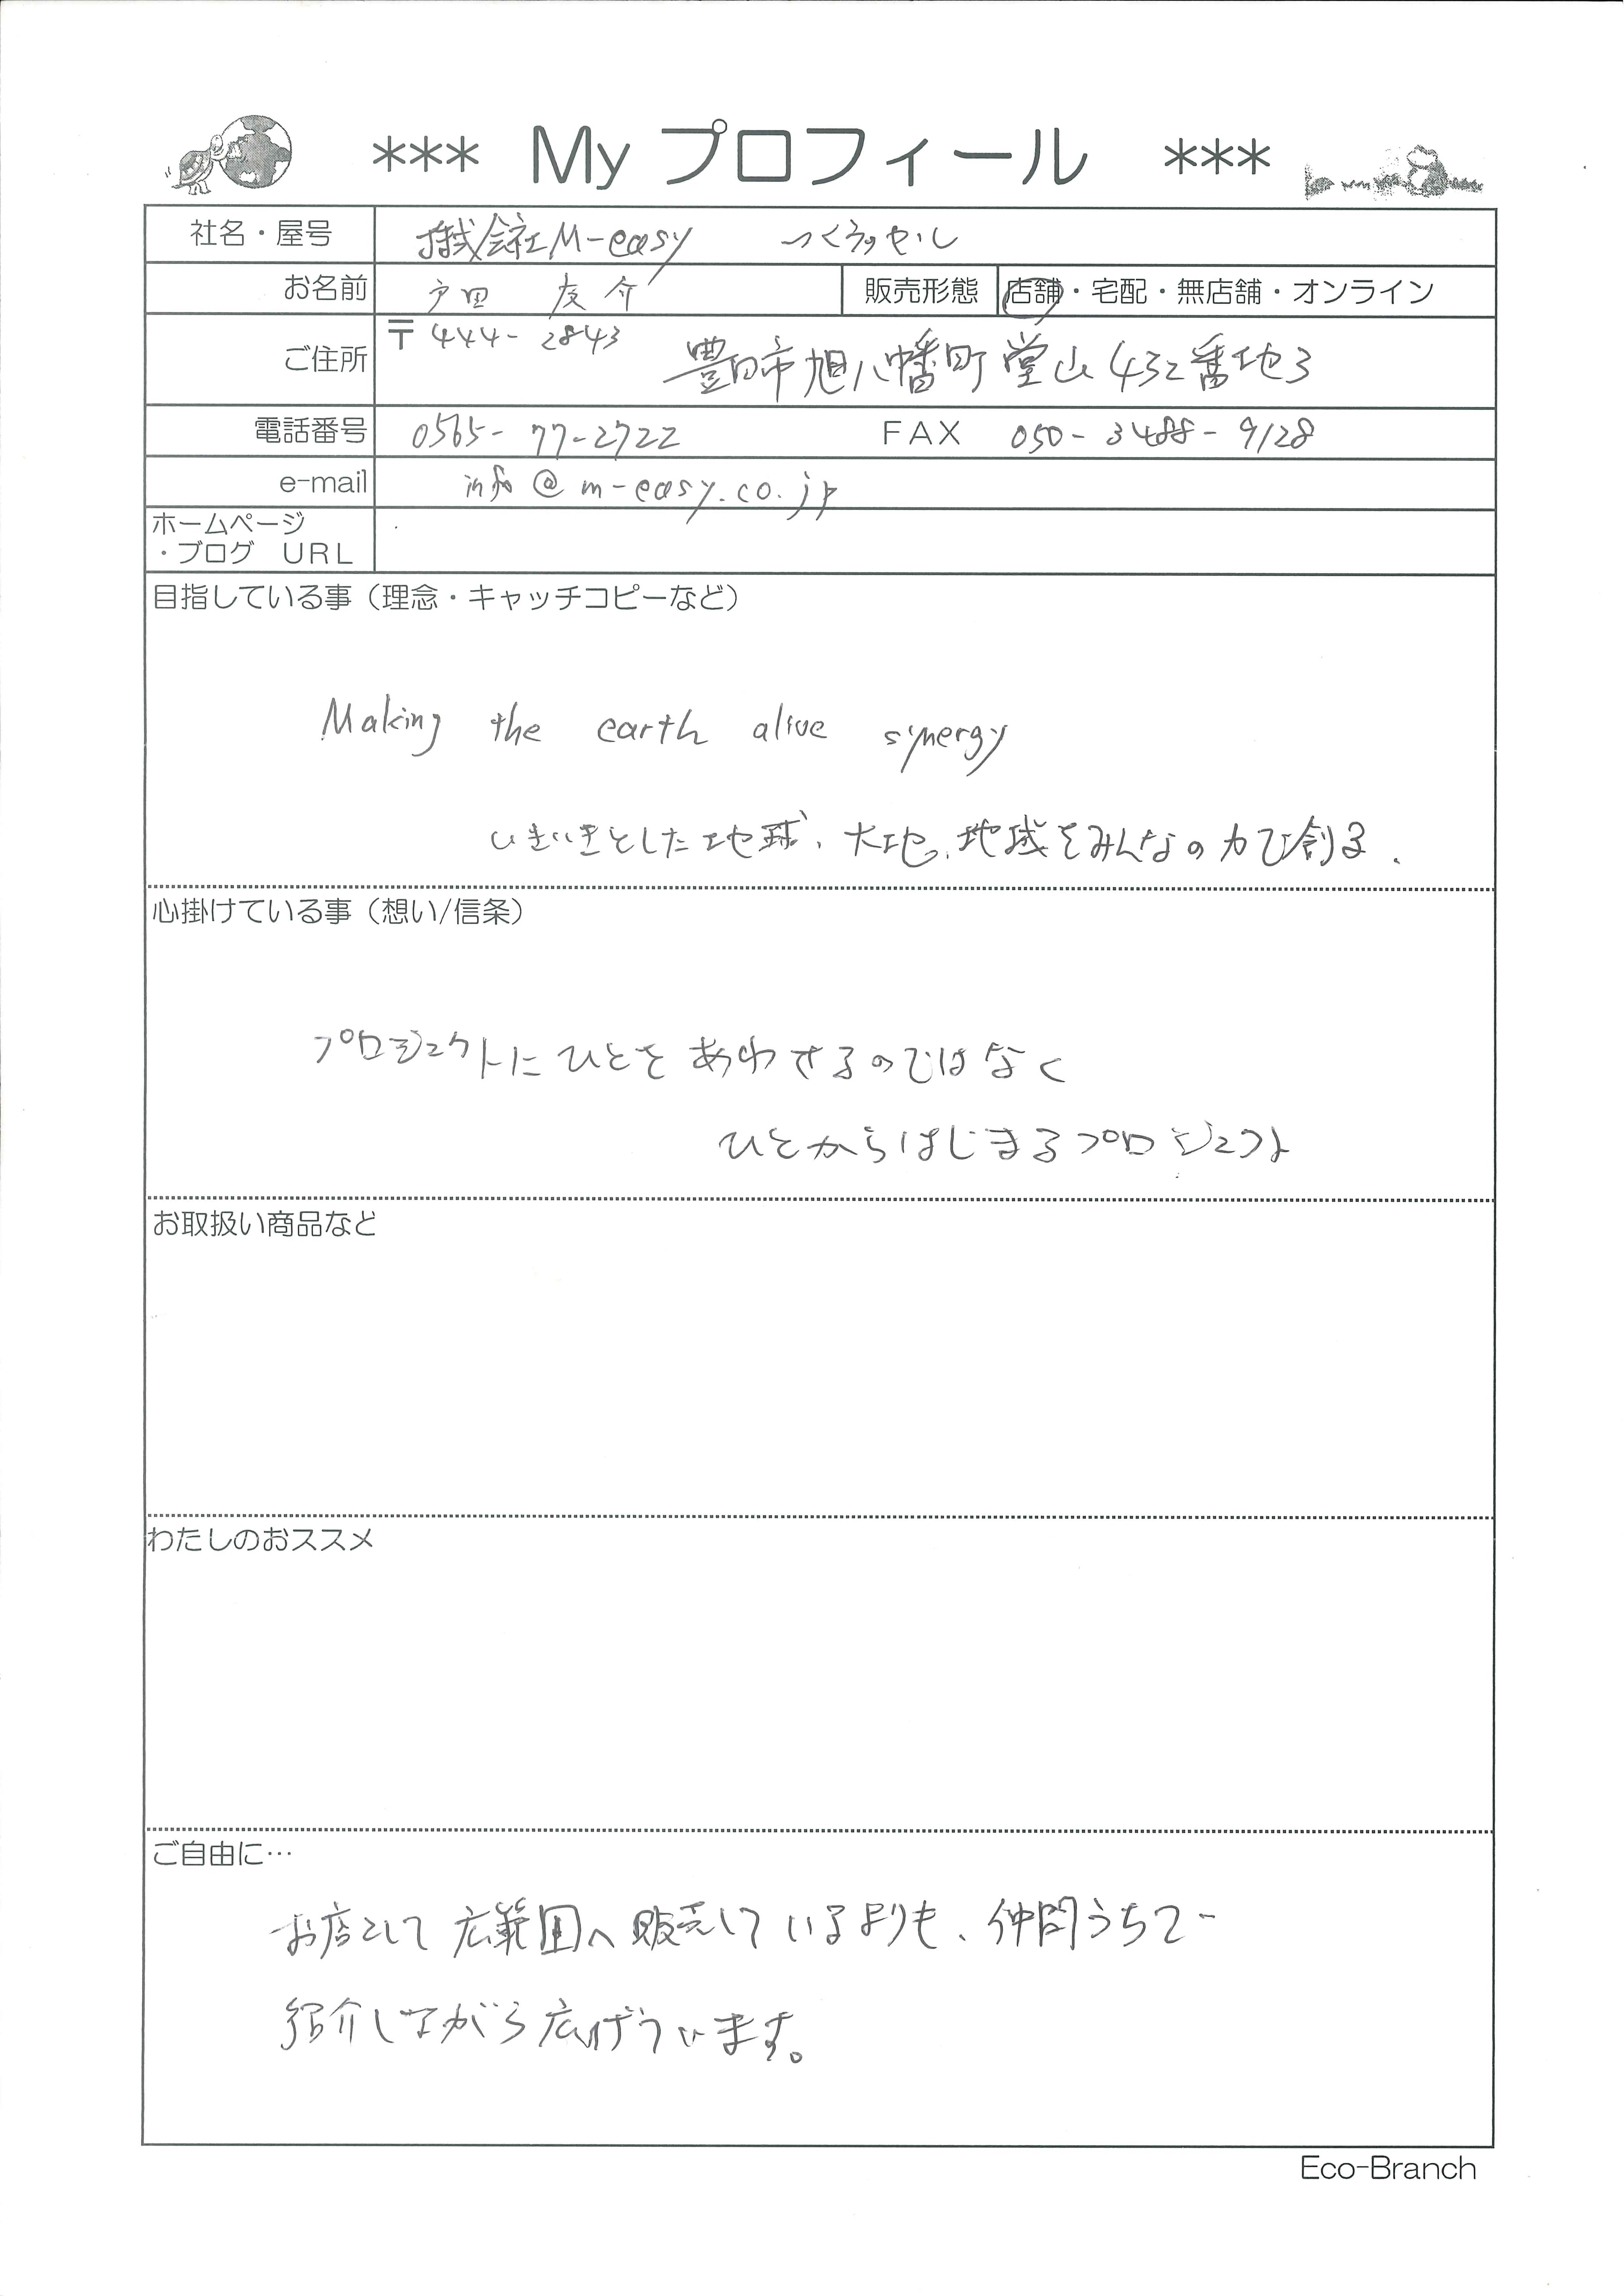 *** My プロフィール ***
社名・屋号 株式会社M-easy つくラッセル
お名前 戸田 友介 販売形態 店舗・宅配・無店舗・オンライン
ご住所 〒444-2843 豊田市旭八幡町堂山432番地3
電話番号 0565-77-2722 FAX 050-3488-9128
e-mail info@m-easy.co.jp
ホームページ
・ブログ URL
目指している事（理念・キャッチコピーなど）
Making the earth alive synergy
いきいきとした地球、大地、地域をみんなの力で創る.
心掛けている事（想い/信条）
プロジェクトにひとをあわせるのではなく
ひとからはじまるプロジェクト
お取扱い商品など
わたしのおススメ
ご自由に…
お店として広範囲へ販売しているよりも、仲間うちで
紹介しながら広げています。
Eco-Branch